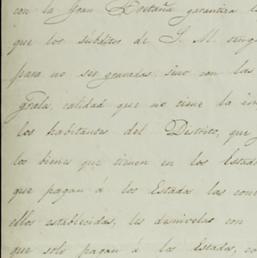 con la Gran Bretaña garantiza l
que los súbditos de S. M. teng
para no ser gravados, sino con las
calidad que no tiene la
los habitantes del Distrito, que
los bienes que tienen en los Estado
que pagan á los Estados las con
ellos establecidas, les desnivela con
que solo pagan á los Estados, co